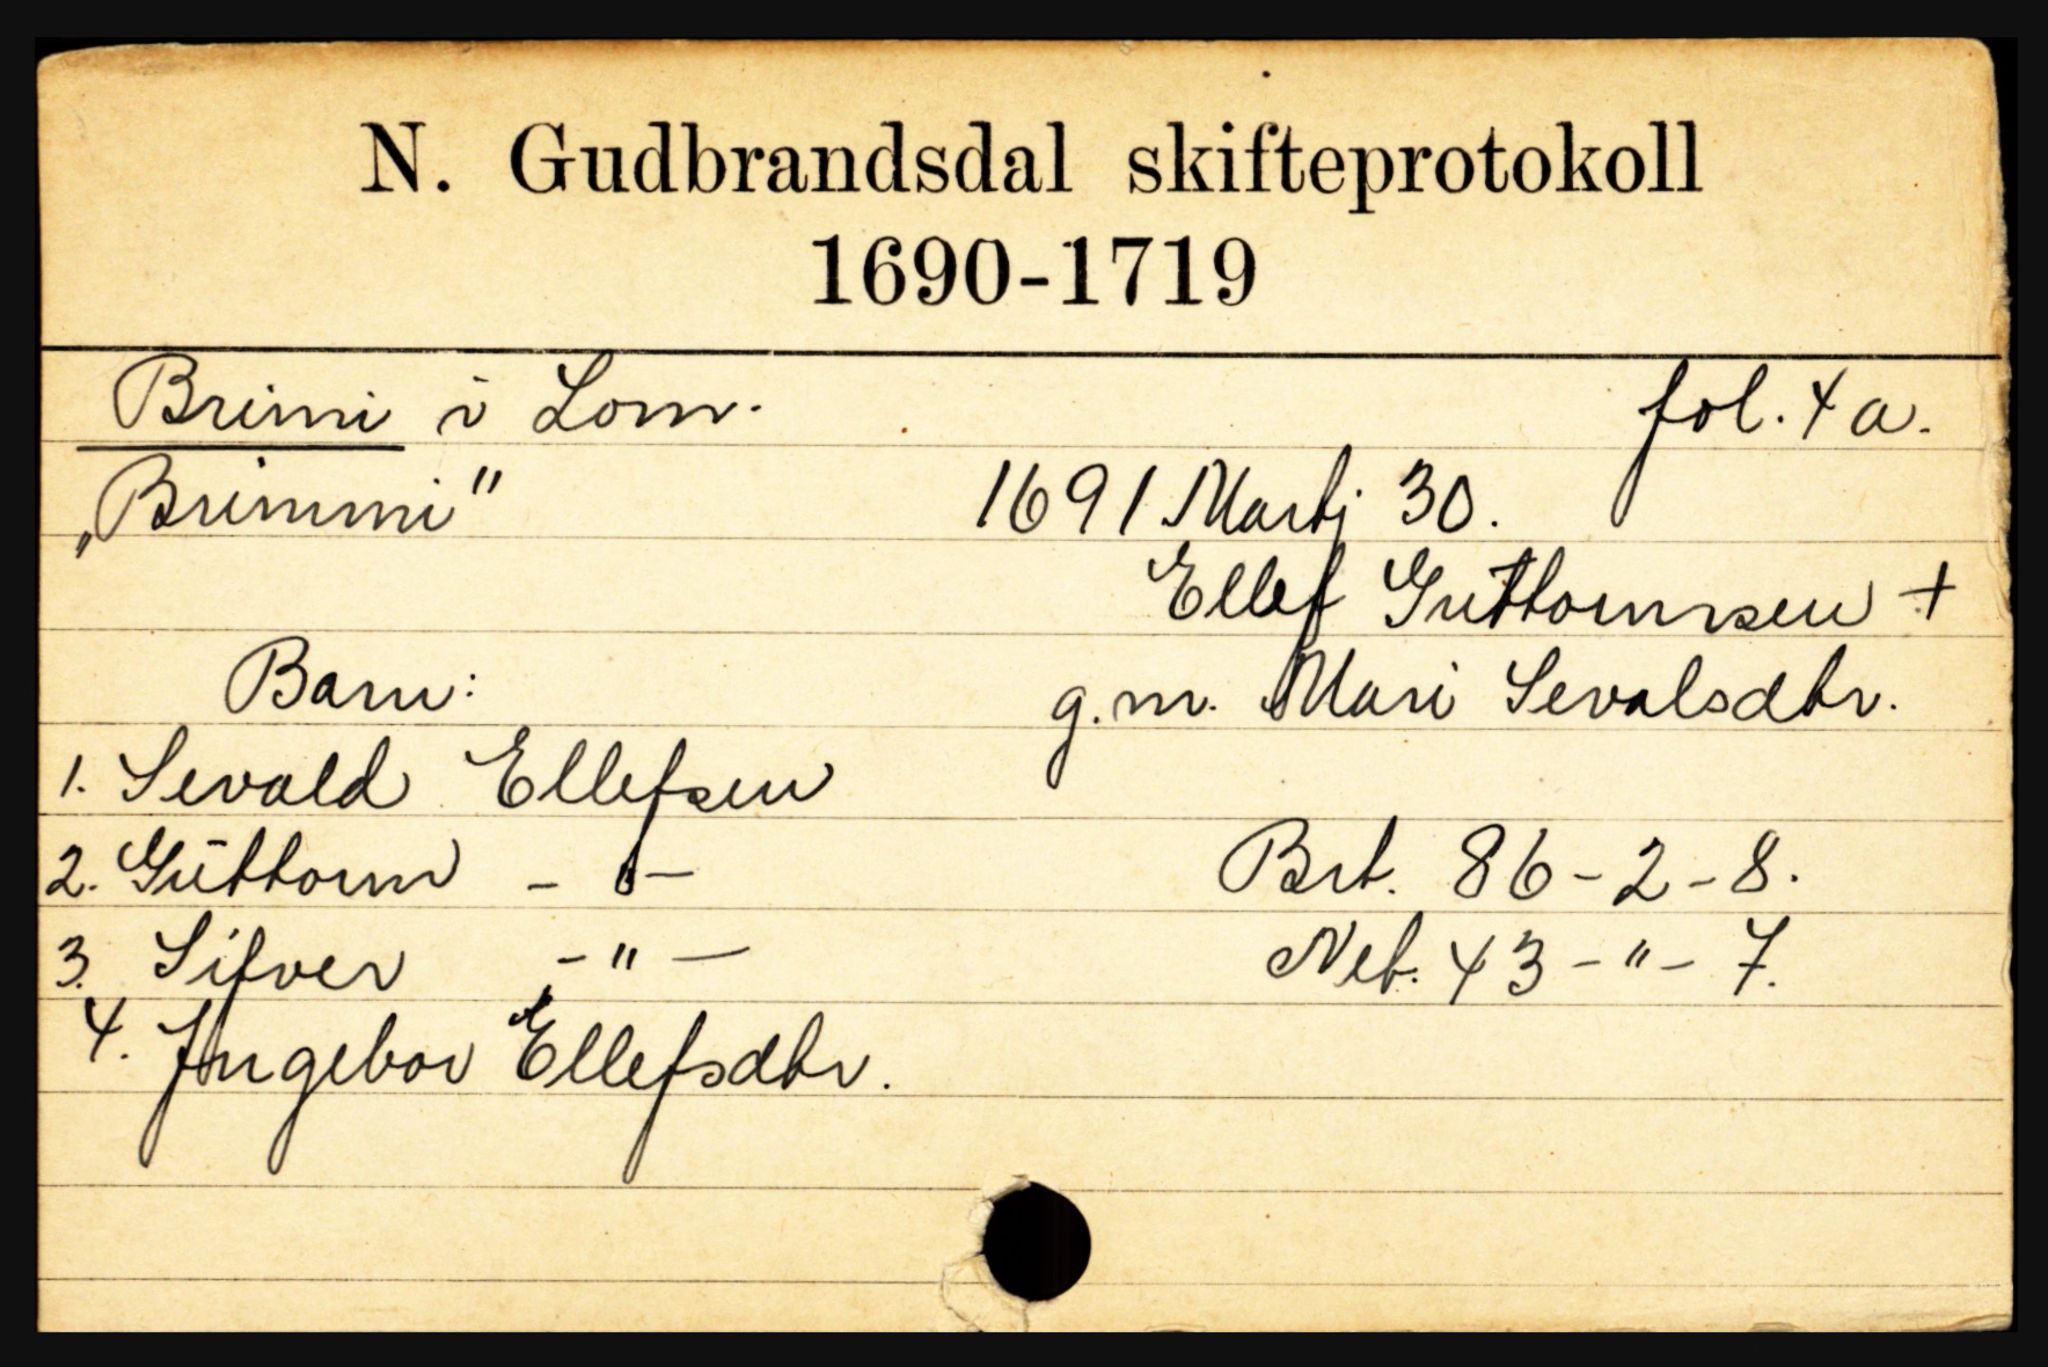 N. Gudbrandsdal skifteprotokoll
1690-1719
Brimi i Lom. fol. 4a.
„Brimmi" 1691 Martj 30.
Ellef Guttormsen +
Barn: g.m. Mari Sevalsdtr.
1. Sevald Ellefsen
2. Guttorm - " - Brt. 86-2-8.
3. Sifver - " - Net. 43 - " - 7.
4. Ingebor Ellefsdtr.